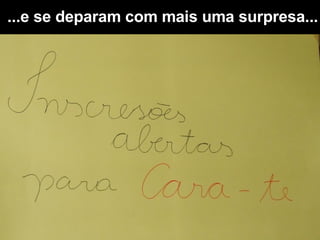 ...e se deparam com mais uma surpresa...
Inscresões
abertas
para Cara-te